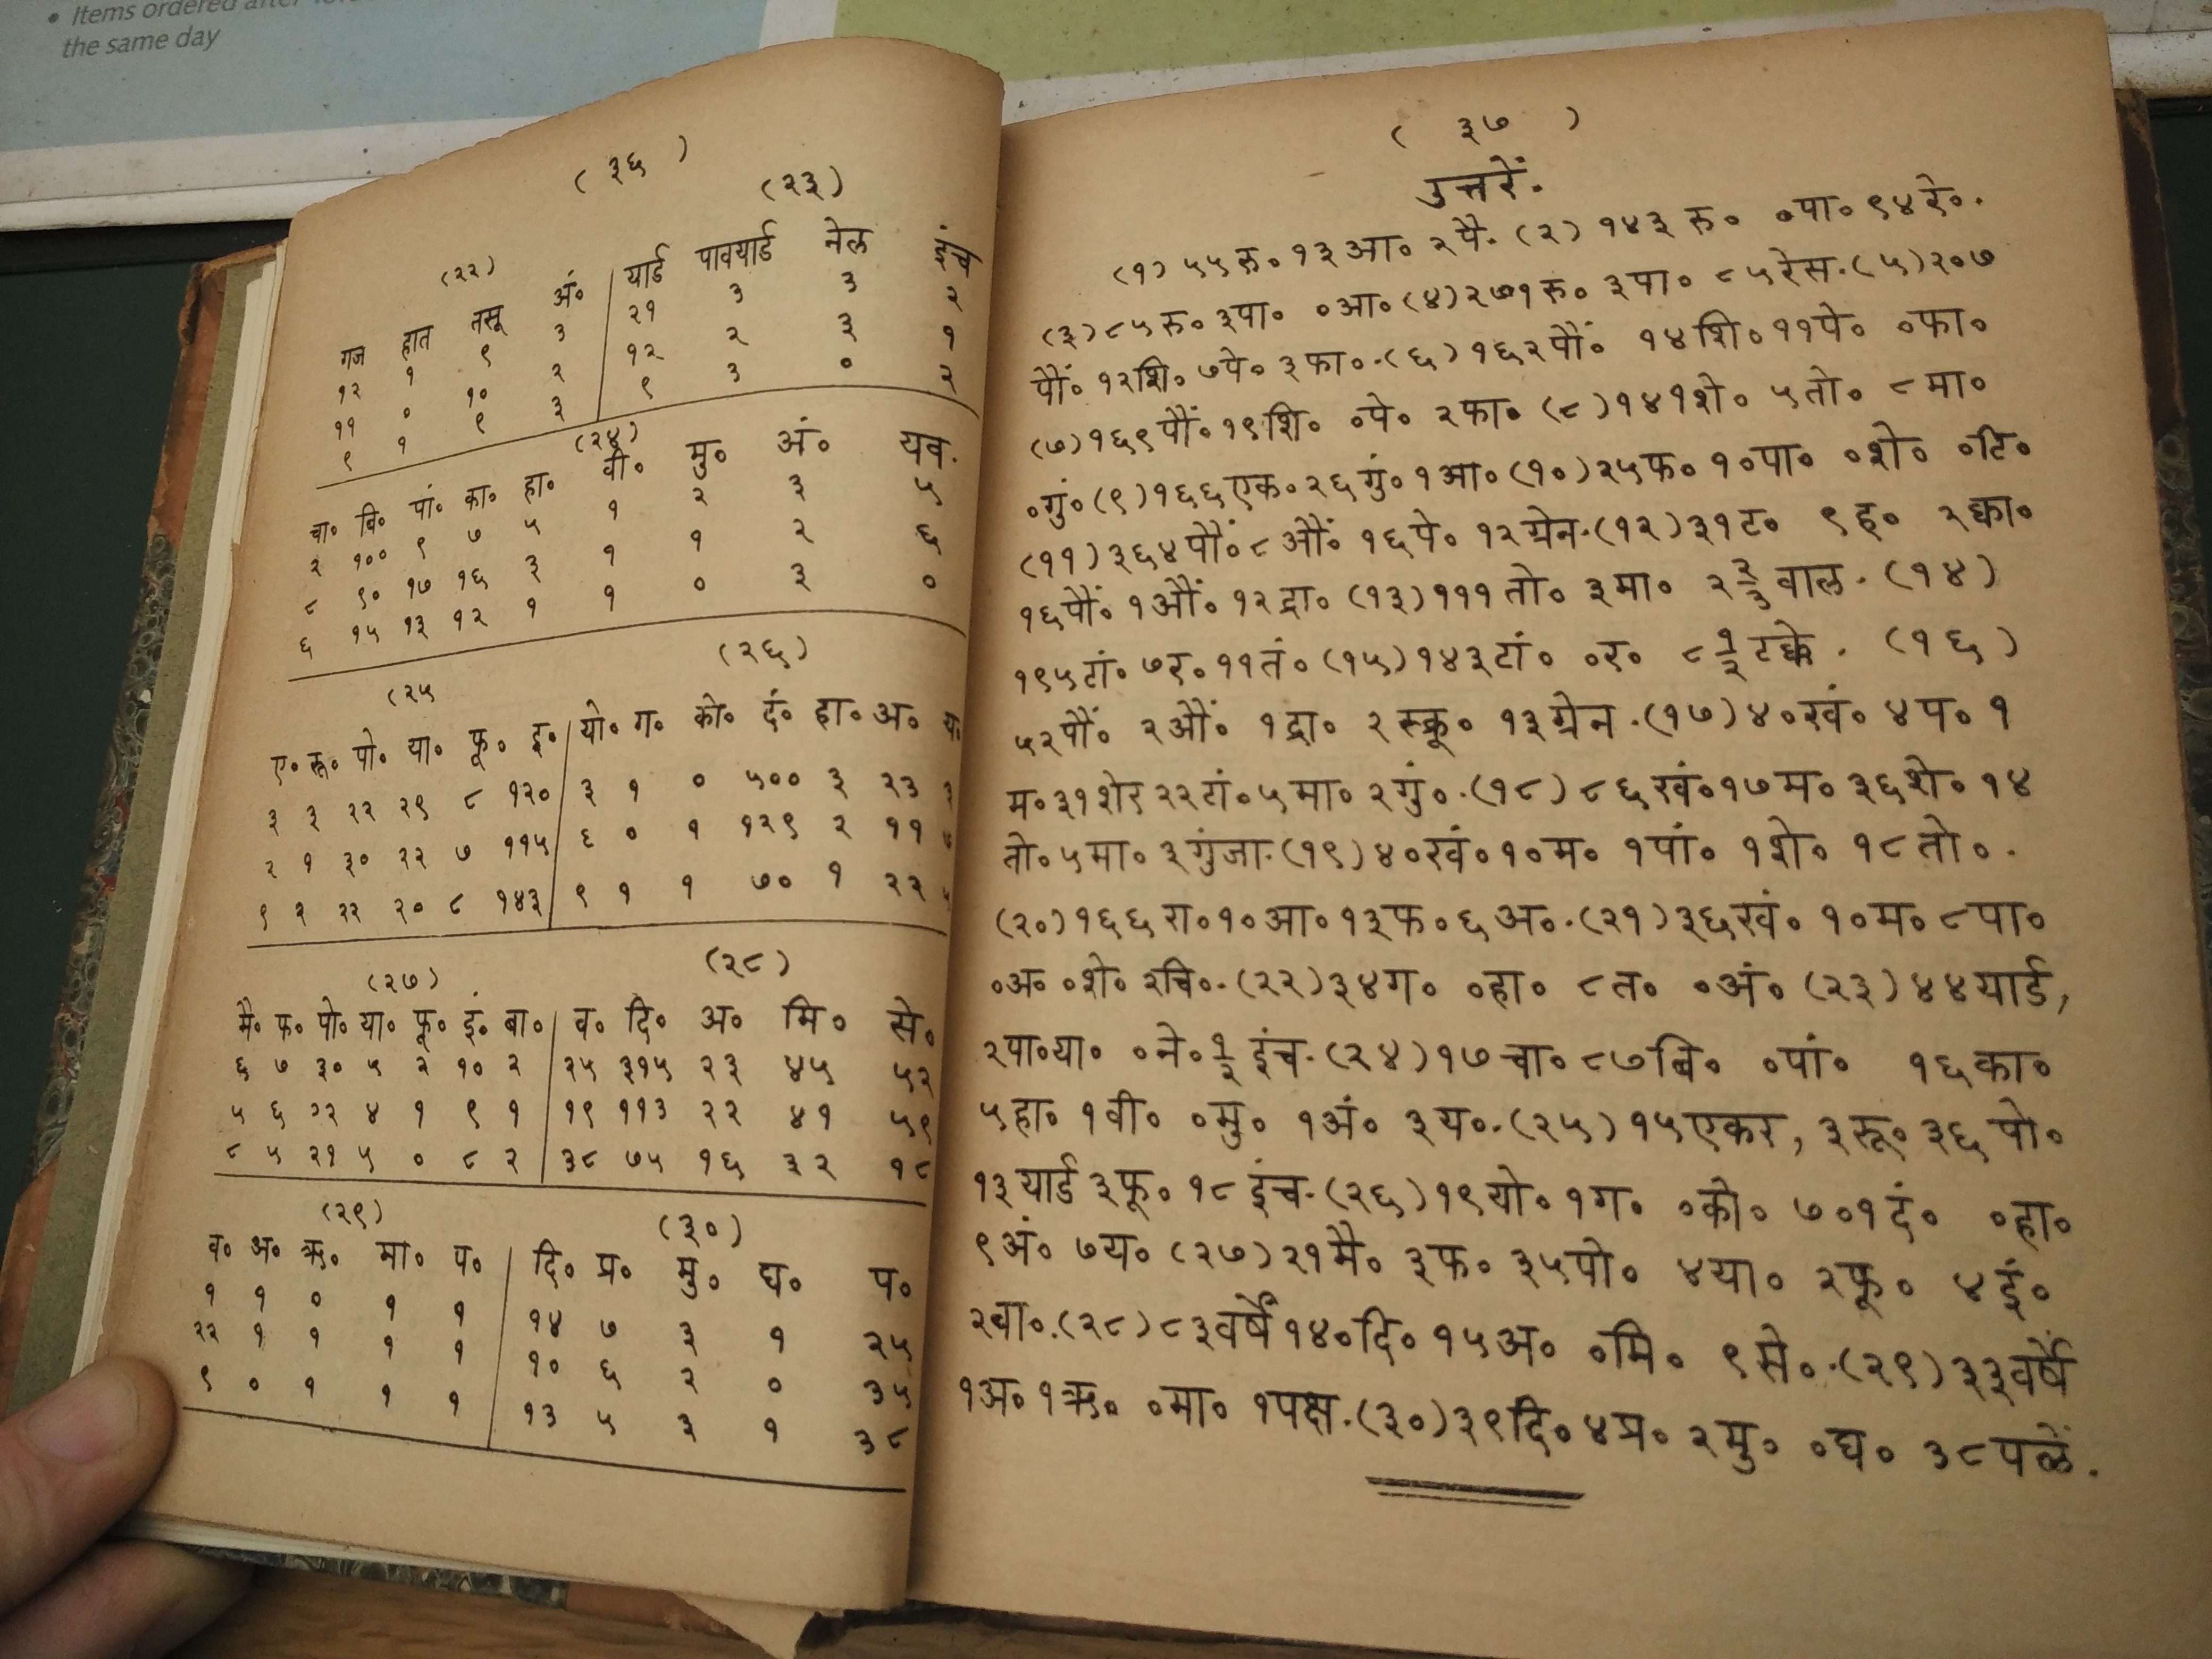 • Items ordered after
the same day
( ३६ )
(२२)
गज हात तसू अं०
१२ १ ९ ३
११ ० १० २
९ १ ९ ३
(२३)
यार्ड पावयार्ड नेल इंच
२१ ३ ३ २
१२ २ ३ १
९ ३ ० २
(२४)
चा० बि० पां० का० हा० वी० मु० अं० यव.
२ १०० ९ ७ ५ १ २ ३ ५
८ ९० १७ १६ ३ १ १ २ ६
६ १५ १३ १२ १ १ ० ३ ०
(२५
ए० रू० पो० या० फू० इ०
३ ३ २२ २९ ८ १२०
२ १ ३० २२ ७ ११५
९ २ २२ २० ८ १४३
(२६)
यो० ग० को० दं० हा० अ० य०
३ १ ० ५०० ३ २३
६ ० १ १२९ २ ११ ७
९ १ १ ७० १ २२
(२७)
मै० फ० पो० या० फू० इं० बा०
६ ७ ३० ५ २ १० २
५ ६ २२ ४ १ ९ १
८ ५ २१ ५ ० ८ २
(२८)
व० दि० अ० मि० से०
२५ ३१५ २३ ४५ ५२
१९ ११३ २२ ४१ ५९
३८ ७५ १६ ३२ १८
(२९)
व० अ० ऋ० मा० प०
१ १ ० १ १
२२ १ १ १ १
९ ० १ १ १
(३०)
दि० प्र० मु० घ० प०
१४ ७ ३ १ २५
१० ६ २ ० ३५
१३ ५ ३ १ ३८
( ३७ )
उत्तरें.
(१) ५५ रु० १३ आ० २ पै. (२) १४३ रु० ०पा० ९४ रे०.
(३) ८५ रु० ३पा० ०आ० (४) २७१ रु० ३पा० ८५ रेस. (५) २०७
पौं० १२शि० ७पे० ३फा०. (६) १६२ पौं० १४शि० ११पे० ०फा०
(७) १६९ पौं० १९शि० ०पे० २फा० (८) १४१शे० ५तो० ८मा०
०गुं० (९) १६६ एक० २६ गुं० १आ० (१०) २५फ० १०पा० ०शे० ०टि०
(११) ३६४ पौं० ८औं० १६पे० १२ ग्रेन. (१२) ३१ट० ९ ह० २क्वा०
१६पौं० १औं० १२ द्रा० (१३) १११ तो० ३मा० २ २/३ वाल. (१४)
१९५टां० ७र० ११तं० (१५) १४३टां० ०र० ८ १/२ टक्के. (१६)
५२पौं० २औं० १द्रा० २ स्क्रू० १३ ग्रेन. (१७) ४०खं० ४प० १
म० ३१शेर २२टां० ५मा० २गुं०. (१८) ८६खं० १७म० ३६शे० १४
तो० ५मा० ३ गुंजा. (१९) ४०खं० १०म० १पां० १शे० १८तो०.
(२०) १६६रा० १०आ० १३फ० ६अ०. (२१) ३६खं० १०म० ८पा०
०अ० ०शे० २चि०. (२२) ३४ग० ०हा० ८त० ०अं० (२३) ४४यार्ड,
२पा०या० ०ने० १/२ इंच. (२४) १७चा० ८७बि० ०पां० १६का०
५हा० १वी० ०मु० १अं० ३य०. (२५) १५एकर, ३रू० ३६पो०
१३यार्ड ३फू० १८ इंच. (२६) १९यो० १ग० ०को० ७०१दं० ०हा०
९अं० ७य० (२७) २१मै० ३फ० ३५पो० ४या० २फू० ४इं०
२बा०. (२८) ८३वर्षें १४०दि० १५अ० ०मि० ९से०. (२९) ३३वर्षें
१अ० १ऋ० ०मा० १पक्ष. (३०) ३९दि० ४प्र० २मु० ०घ० ३८पळें.